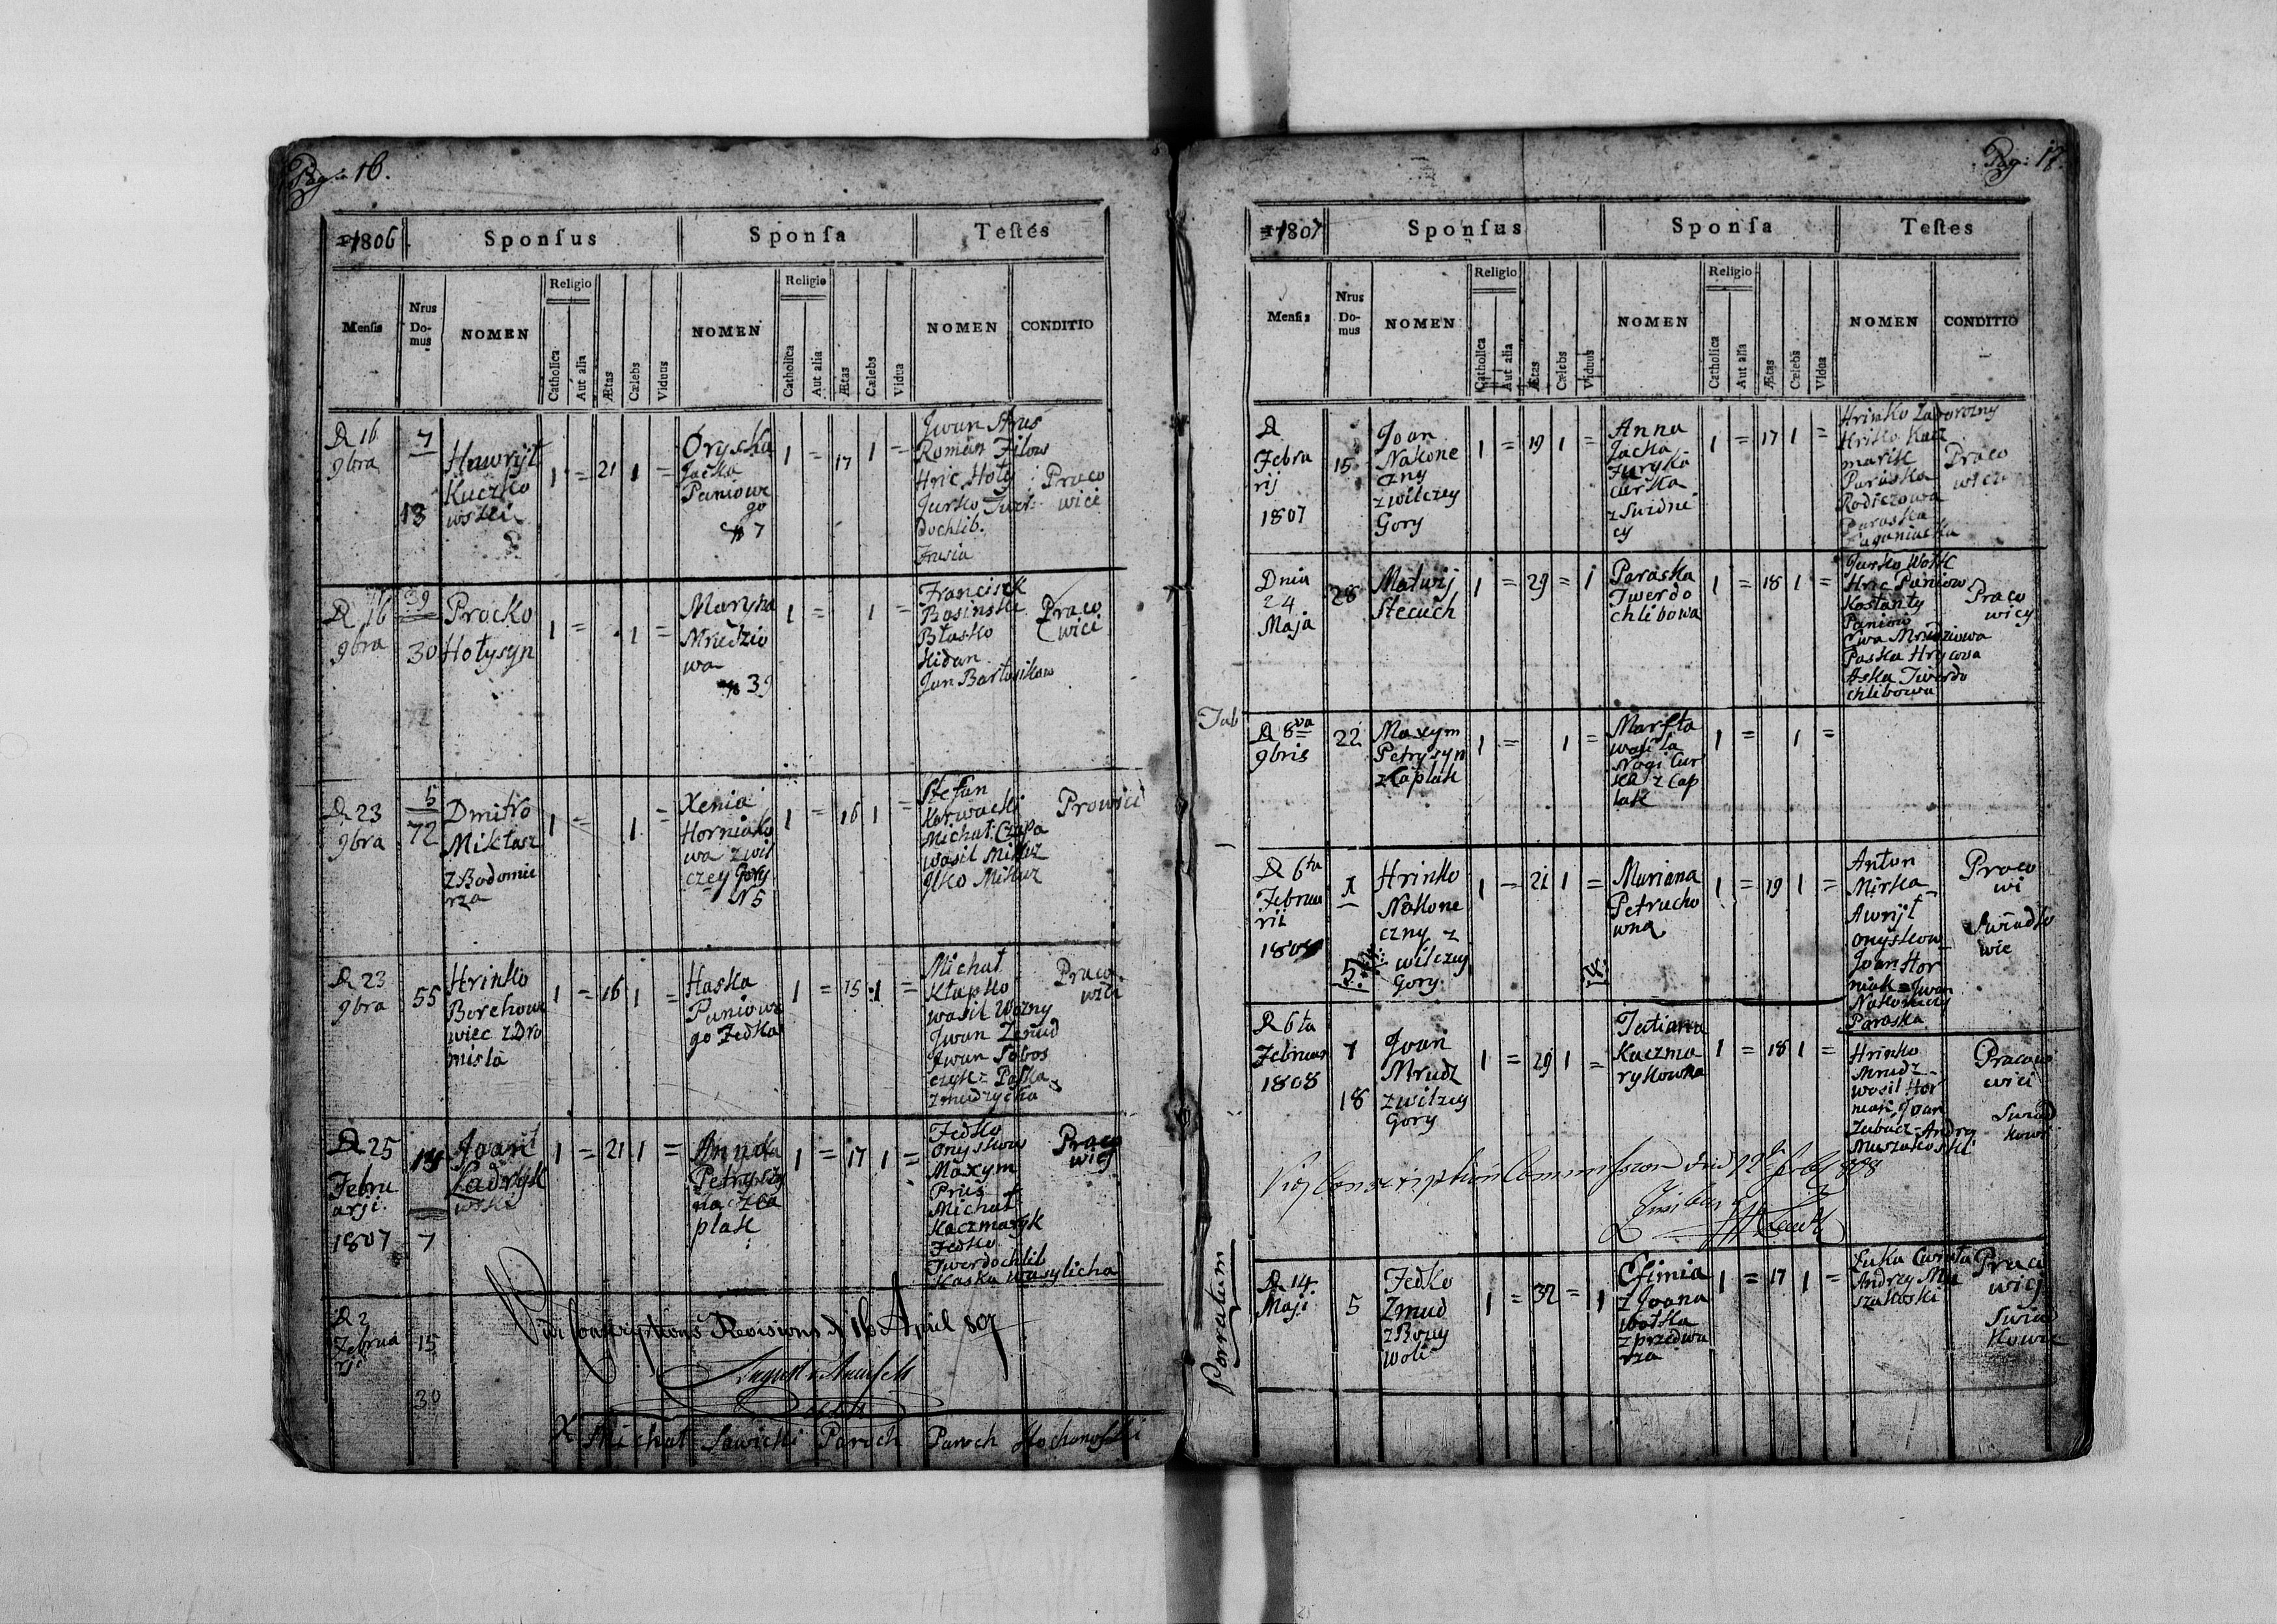 Pag: 16.
1806
Sponſus
Sponſa
Teſtes
Menſis
Nrus Do-mus
NOMEN
Religio
Catholica
Aut alia
Ætas
Cælebs
Viduus
NOMEN
Religio
Catholica
Aut alia
Ætas
Cælebs
Vidua
NOMEN
CONDITIO
16 9bra
7
13
Hawrył
Kuczko
wski
1 = 21 1 =
Oryszka
Jacka
Paniowe
go
N 7
1 = 17 1 =
Jwan Strus
Roman Filow
Hric Hoły
Jurko Twer
Dochlib.
Praco
wici
16 9bra
39
30
Procko
Hołysyn
1 = 1 =
Maryna
Mrudzio
wa
N 39
1 = 1 =
Franciszk
Basinski
Błasko
Hidan
Jan Bartosikow
Praco
wici
23 9bra
5
72
Dmitro
Mikłasz
z Bodomie
rza
1 = 1 =
Xenia
Horniako
wa z wil
czey Gory
N 5
1 = 16 1 =
Stefan
Karwacki
Michał Czapa
wasil Mikłuz
Jlko Mikłuz
Prowici
23 9bra
55
Hrinko
Borehowe
wiec z Dro
misla
1 = 16 1 =
Haska
Paniowe
go Fedka
1 = 15 1 =
Michał
Kłapko
wasil Wozny
Jwan Zmud
Jwan Sobos
czyk = Paska
Zmudzycha
Praco
wici
25
Febru
arji
1807
14
7
Joan
Ladrysk
wski
1 = 21 1 =
Anna
Petryszy
na z Ca
plak
1 = 17 1 =
Fedko
Onyszkow
Maxym
Prus
Michał
Kaczmaryk
Fedko
Twerdochlib
Kaska wasylicha
Praco
wici
2
Februa
rji
15
30
Revisions 16 April 807
Michał Sawicki Paroch Paroch
Pag: 17.
1807
Sponſus
Sponſa
Teſtes
Menſis
Nrus Do-mus
NOMEN
Religio
Catholica
Aut alia
Ætas
Cælebs
Viduus
NOMEN
Religio
Catholica
Aut alia
Ætas
Cælebs
Vidua
NOMEN
CONDITIO
Febra
rij
1807
15
Joan
Nakone
czny
z wilczey
Gory
1 = 19 1 =
Anna
Jacka
Juryka
curka
z Swidni
cy
1 = 17 1 =
Hrinko Zaporozny
Hrisko Kacz
marik
Paraska
Rodiczowa
Paraska
Praco
wici
Dnia
24
Maja
28
Matwij
Stecuch
1 = 29 = 1
Paraska
Twerdo
chlibowa
1 = 18 1 =
Jurko Wołk
Hric Paniow
Kostanty
Paniow
Ewa Mrudziowa
Paska Hrycowa
Aska Twerdo
chlibowa
Praco
wicy
8va
9bris
22
Maxym
Petrysyn
z Caplak
1 = 1 =
Marfta
wasila
Nogi Cur
ka z Cap
lak
1 = 1 =
6ta
Februa
rii
1808
1
5
Hrinko
Nakone
czny z
wilczey
Gory
1 = 21 1 =
Mariana
Petrucho
wna
1 = 19 1 =
Anton
Mirka
Awrijł
onyskow
Joan Hor
niak = Jwan
Nakoniczy
Paraska
Praco
wi
Swiadko
wie
6ta
Februar
1808
7
18
Joan
Mrudz
z wilzey
Gory
1 = 29 1 =
Tatiana
Kaczma
rykowna
1 = 18 1 =
Hrinko
Mrudz
wasil Hor
niak, Joan
Zubacz = Andrey
Muszakoski
Pracow
wici
Swiad
kowi
Paratum
14
Maji
5
Fedko
Zmud
z Bony
woli
1 = 32 = 1
Efimia
z Joana
wołka
z przedwa
rza
1 = 17 1 =
Luka Cwinta
Andrzy Mu
szakoski
Praco
wici
Swiad
Kowie